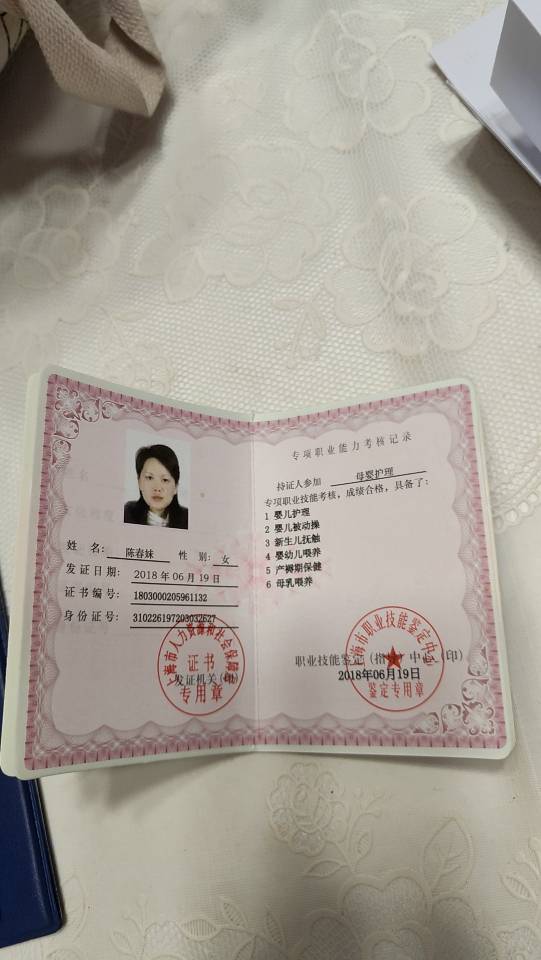 姓 名： 陈春妹 性 别：女
发证日期：2018年06月19日
证书编号：1803000205961132
身份证号：310226197203032627
上海市人力资源和社会保障局
证书
发证机关(印)
专用章
专项职业能力考核记录
持证人参加 母婴护理
专项职业技能考核，成绩合格，具备了：
1 婴儿护理
2 婴儿被动操
3 新生儿抚触
4 婴幼儿喂养
5 产褥期保健
6 母乳喂养
上海市职业技能鉴定中心
职业技能鉴定（指导）中心（印）
2018年06月19日
鉴定专用章